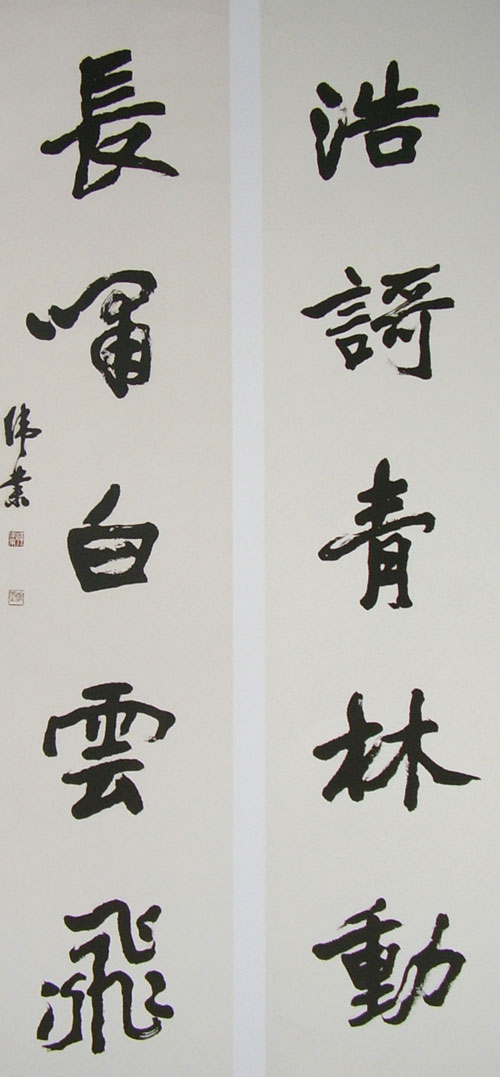 浩謌青林動
長嘯白雲飛
偉業